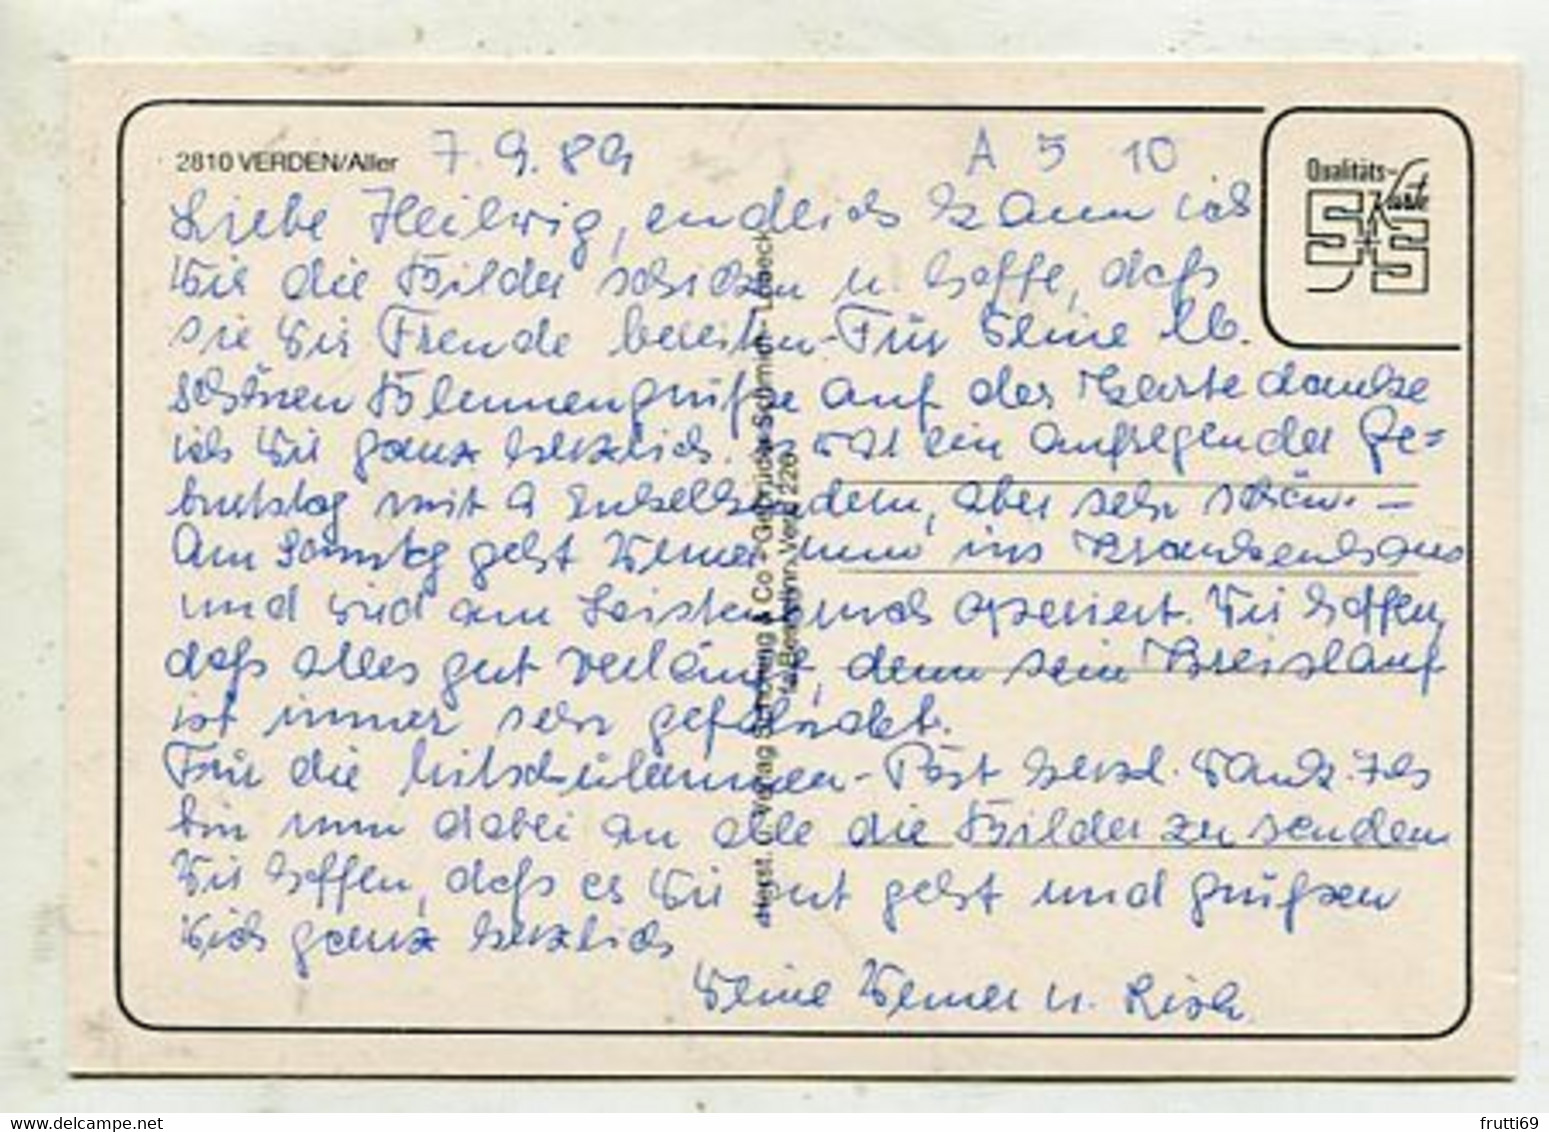 2810 VERDEN/Aller 7.9.89 A 5 10
Qualitäts-Karte
S+S
Liebe Heilwig, endlich kann ich
Dir die Bilder schicken u. hoffe, daß
sie Dir Freude bereiten. Für Deine lb.
schönen Blumengrüße auf der Karte danke
ich Dir ganz herzlich. war ein aufregender Ge=
burtstag mit 9 Enkelkindern, aber sehr schön. –
Am Sonntag geht Werner nun ins Krankenhaus
und wird am Leistenbruch operiert. Wir hoffen,
daß alles gut verläuft, denn sein Kreislauf
ist immer sehr gefährdet.
Für die Mitschülerinnen-Post herzl. Dank. Ich
bin nun dabei an alle die Bilder zu senden
Wir hoffen, daß es Dir gut geht und grüßen
Dich ganz herzlich
Deine Werner u.
Herst. u. Verlag Schöning & Co + Gebrüder Schmidt, Lübeck
Bestell-Nr. Verd 226
frutti69